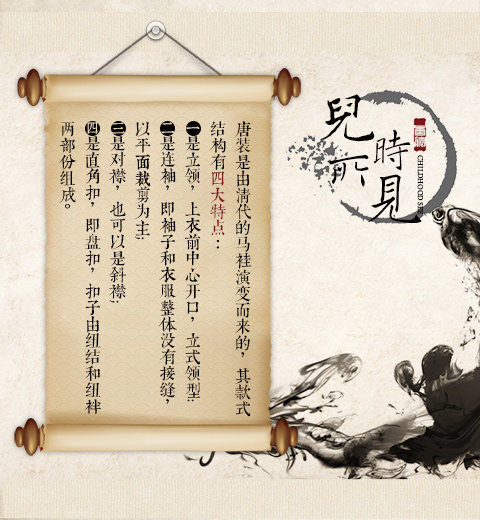 唐装是由清代的马褂演变而来的，其款式
结构有四大特点：
一是立领，上衣前中心开口，立式领型；
二是连袖，即袖子和衣服整体没有接缝，
以平面裁剪为主；
三是对襟，也可以是斜襟；
四是直角扣，即盘扣，扣子由纽结和纽袢
两部份组成。
兒時所見
CHILDHOOD SEE